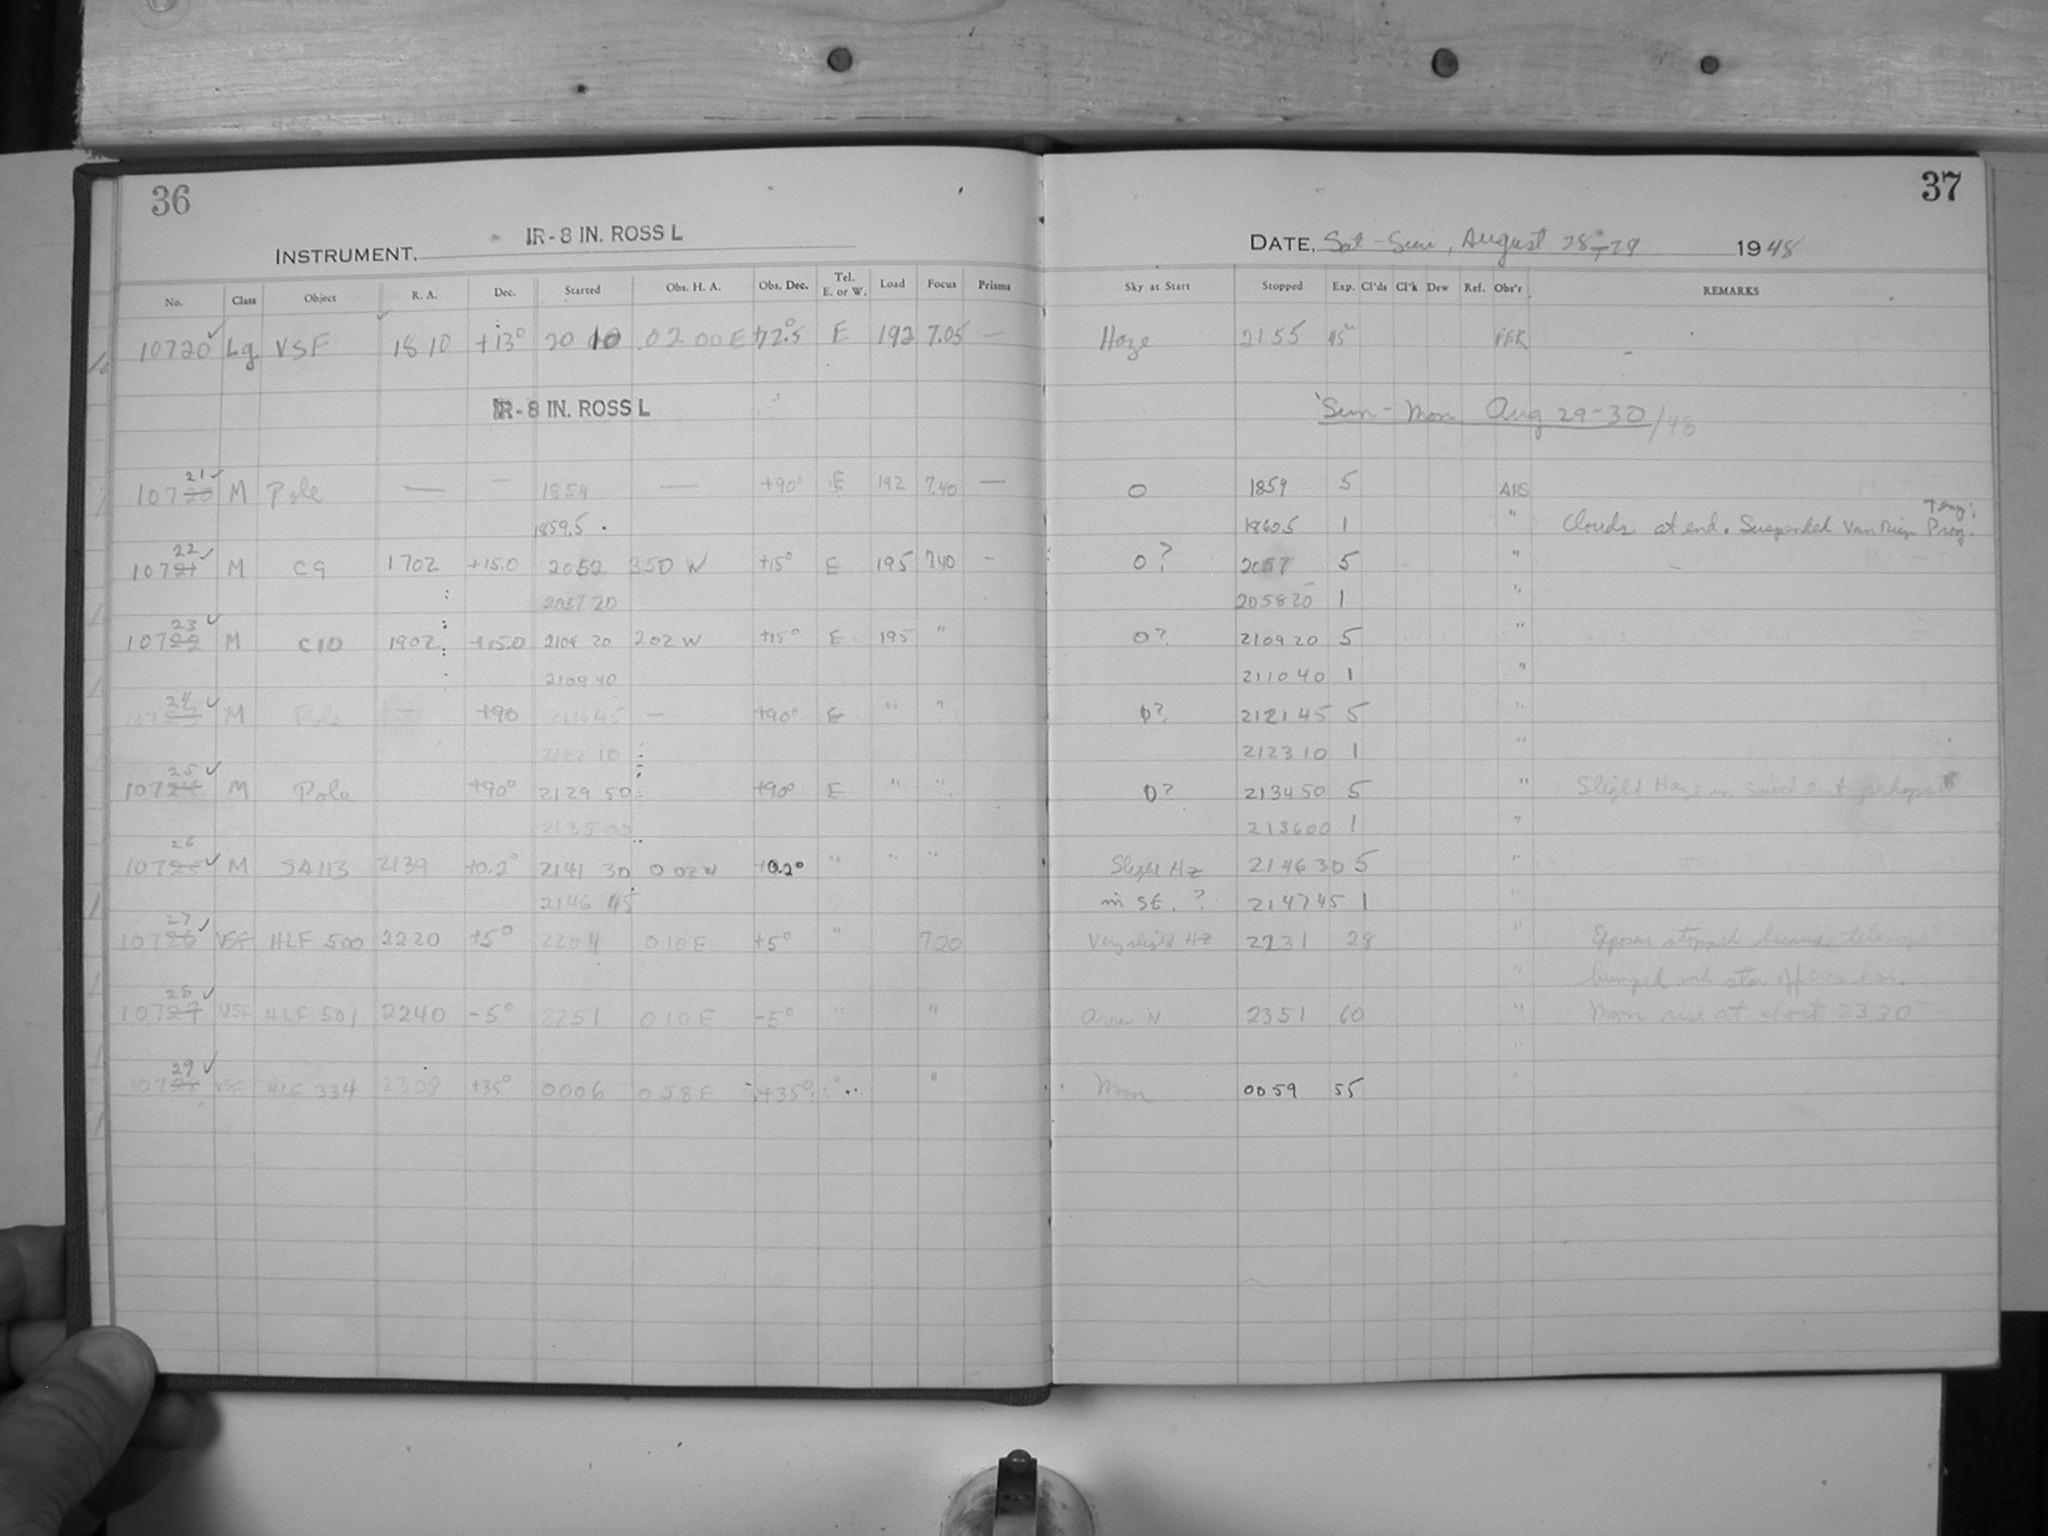 36
INSTRUMENT, IR-8 IN. ROSS L
No. Class Object R. A. Dec. Started Obs. H. A. Obs. Dec. Tel. E. or W. Load Focus Prisms
10720 ✓ Lg VSF 18 10 +13° 20 10 02 00 E +12.5° E 192 7.05 —
IR-8 IN. ROSS L
10720 21 ✓ M Pole — — 1854 — +90° E 192 7.40 —
1859.5
10721 22 ✓ M C9 1702 +15.0 2052 350 W +15° E 195 7.40 -
2057 20
10722 23 ✓ M C10 1902 +15.0 2104 20 202 W +15° E 195 "
2109 40
10723 24 ✓ M Pole — +90 2116 45 — +90° E " "
2122 10
10724 25 ✓ M Pole +90° 2129 50 +90° E " "
2135 00
10725 26 ✓ M SA113 2139 +0.2° 2141 30 0 02 W +0.2° " " "
2146 45
10726 27 ✓ VSF HLF 500 2220 +5° 2204 0 10 E +5° " 7.20
10727 28 ✓ VSF HLF 501 2240 -5° 2251 0 10 E -5° " "
10728 29 ✓ VSF HLF 334 2308 +35° 0006 0 58 E +35° " "
37
DATE, Sat-Sun, August 28-29 1948
Sky at Start Stopped Exp. Cl'ds Cl'k Dew Ref. Obs'r REMARKS
Haze 2155
Sun-Mon Aug 29-30/48
0 1859 5 ARS
18605 1 " Clouds at end. Suspended Van Rien Prog.
0? 2057 5 "
2058 20 1 "
0? 2109 20 5 "
2110 40 1 "
0? 2121 45 5 "
2123 10 1 "
0? 2134 50 5 " Slight Haze perhaps
2136 00 1 "
Slight Hz 2146 30 5 "
in SE. ? 2147 45 1 "
Very slight Hz 2231 28 " Exposure stopped because telescope
" bumped and star off cross hair.
2351 60 " Moon rise at about 2330
"
Moon 0059 55 "